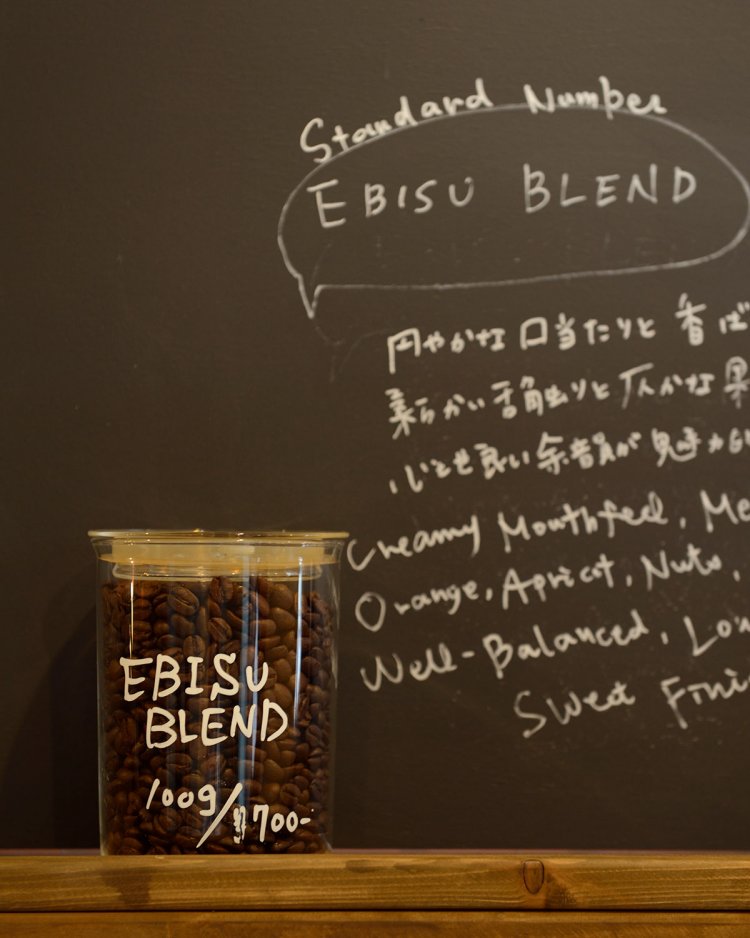 Standard Number
EBISU BLEND
円やかな口当たりと香ば
柔らかい舌触りと仄かな果
心じとも良い余韻が魅力的
Creamy Mouthfeel, Me
Orange, Apricot, Nuts,
Well-Balanced, Lon
Sweet Fini
EBISU
BLEND
100g/¥700-